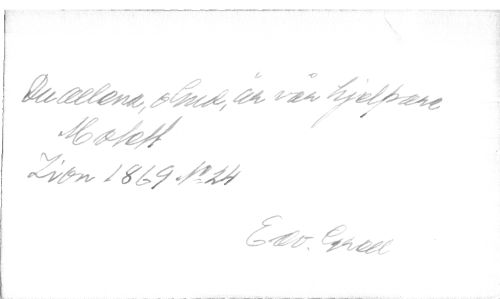 Du allena, o Gud, är vår hjelpare
Motett
Zion 1869 No 24
Edv.